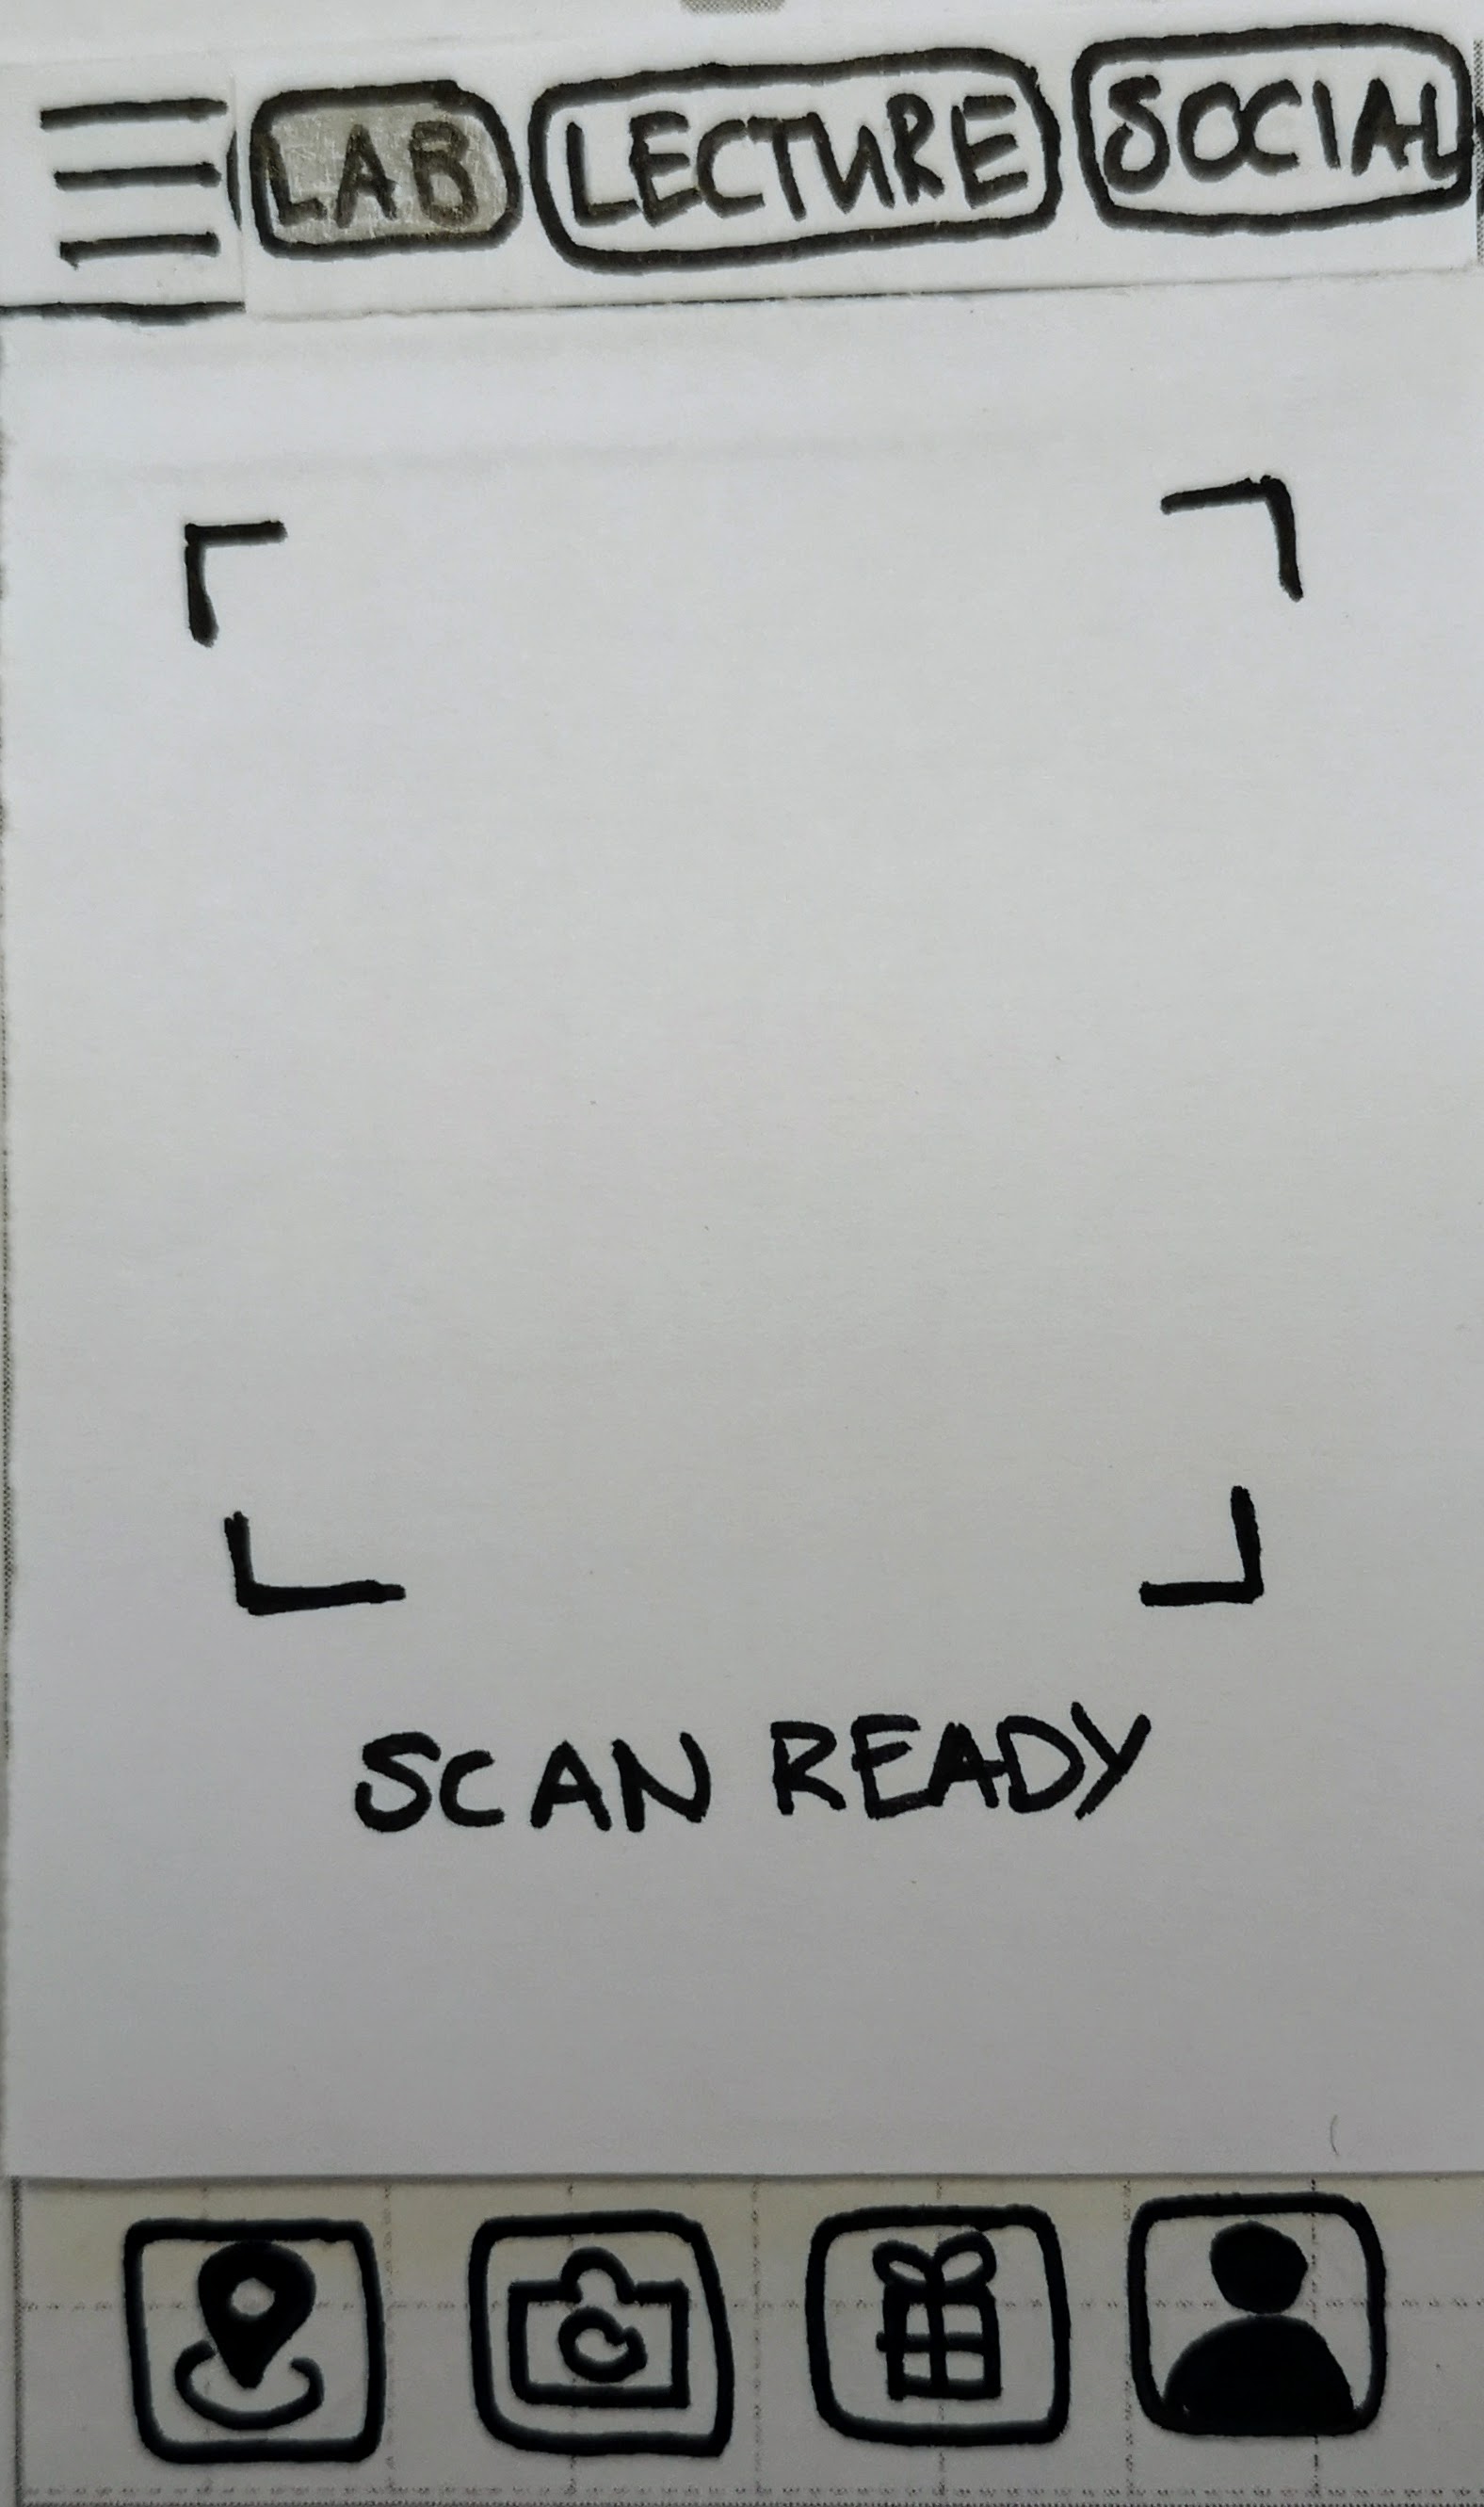 LAB LECTURE SOCIAL
SCAN READY